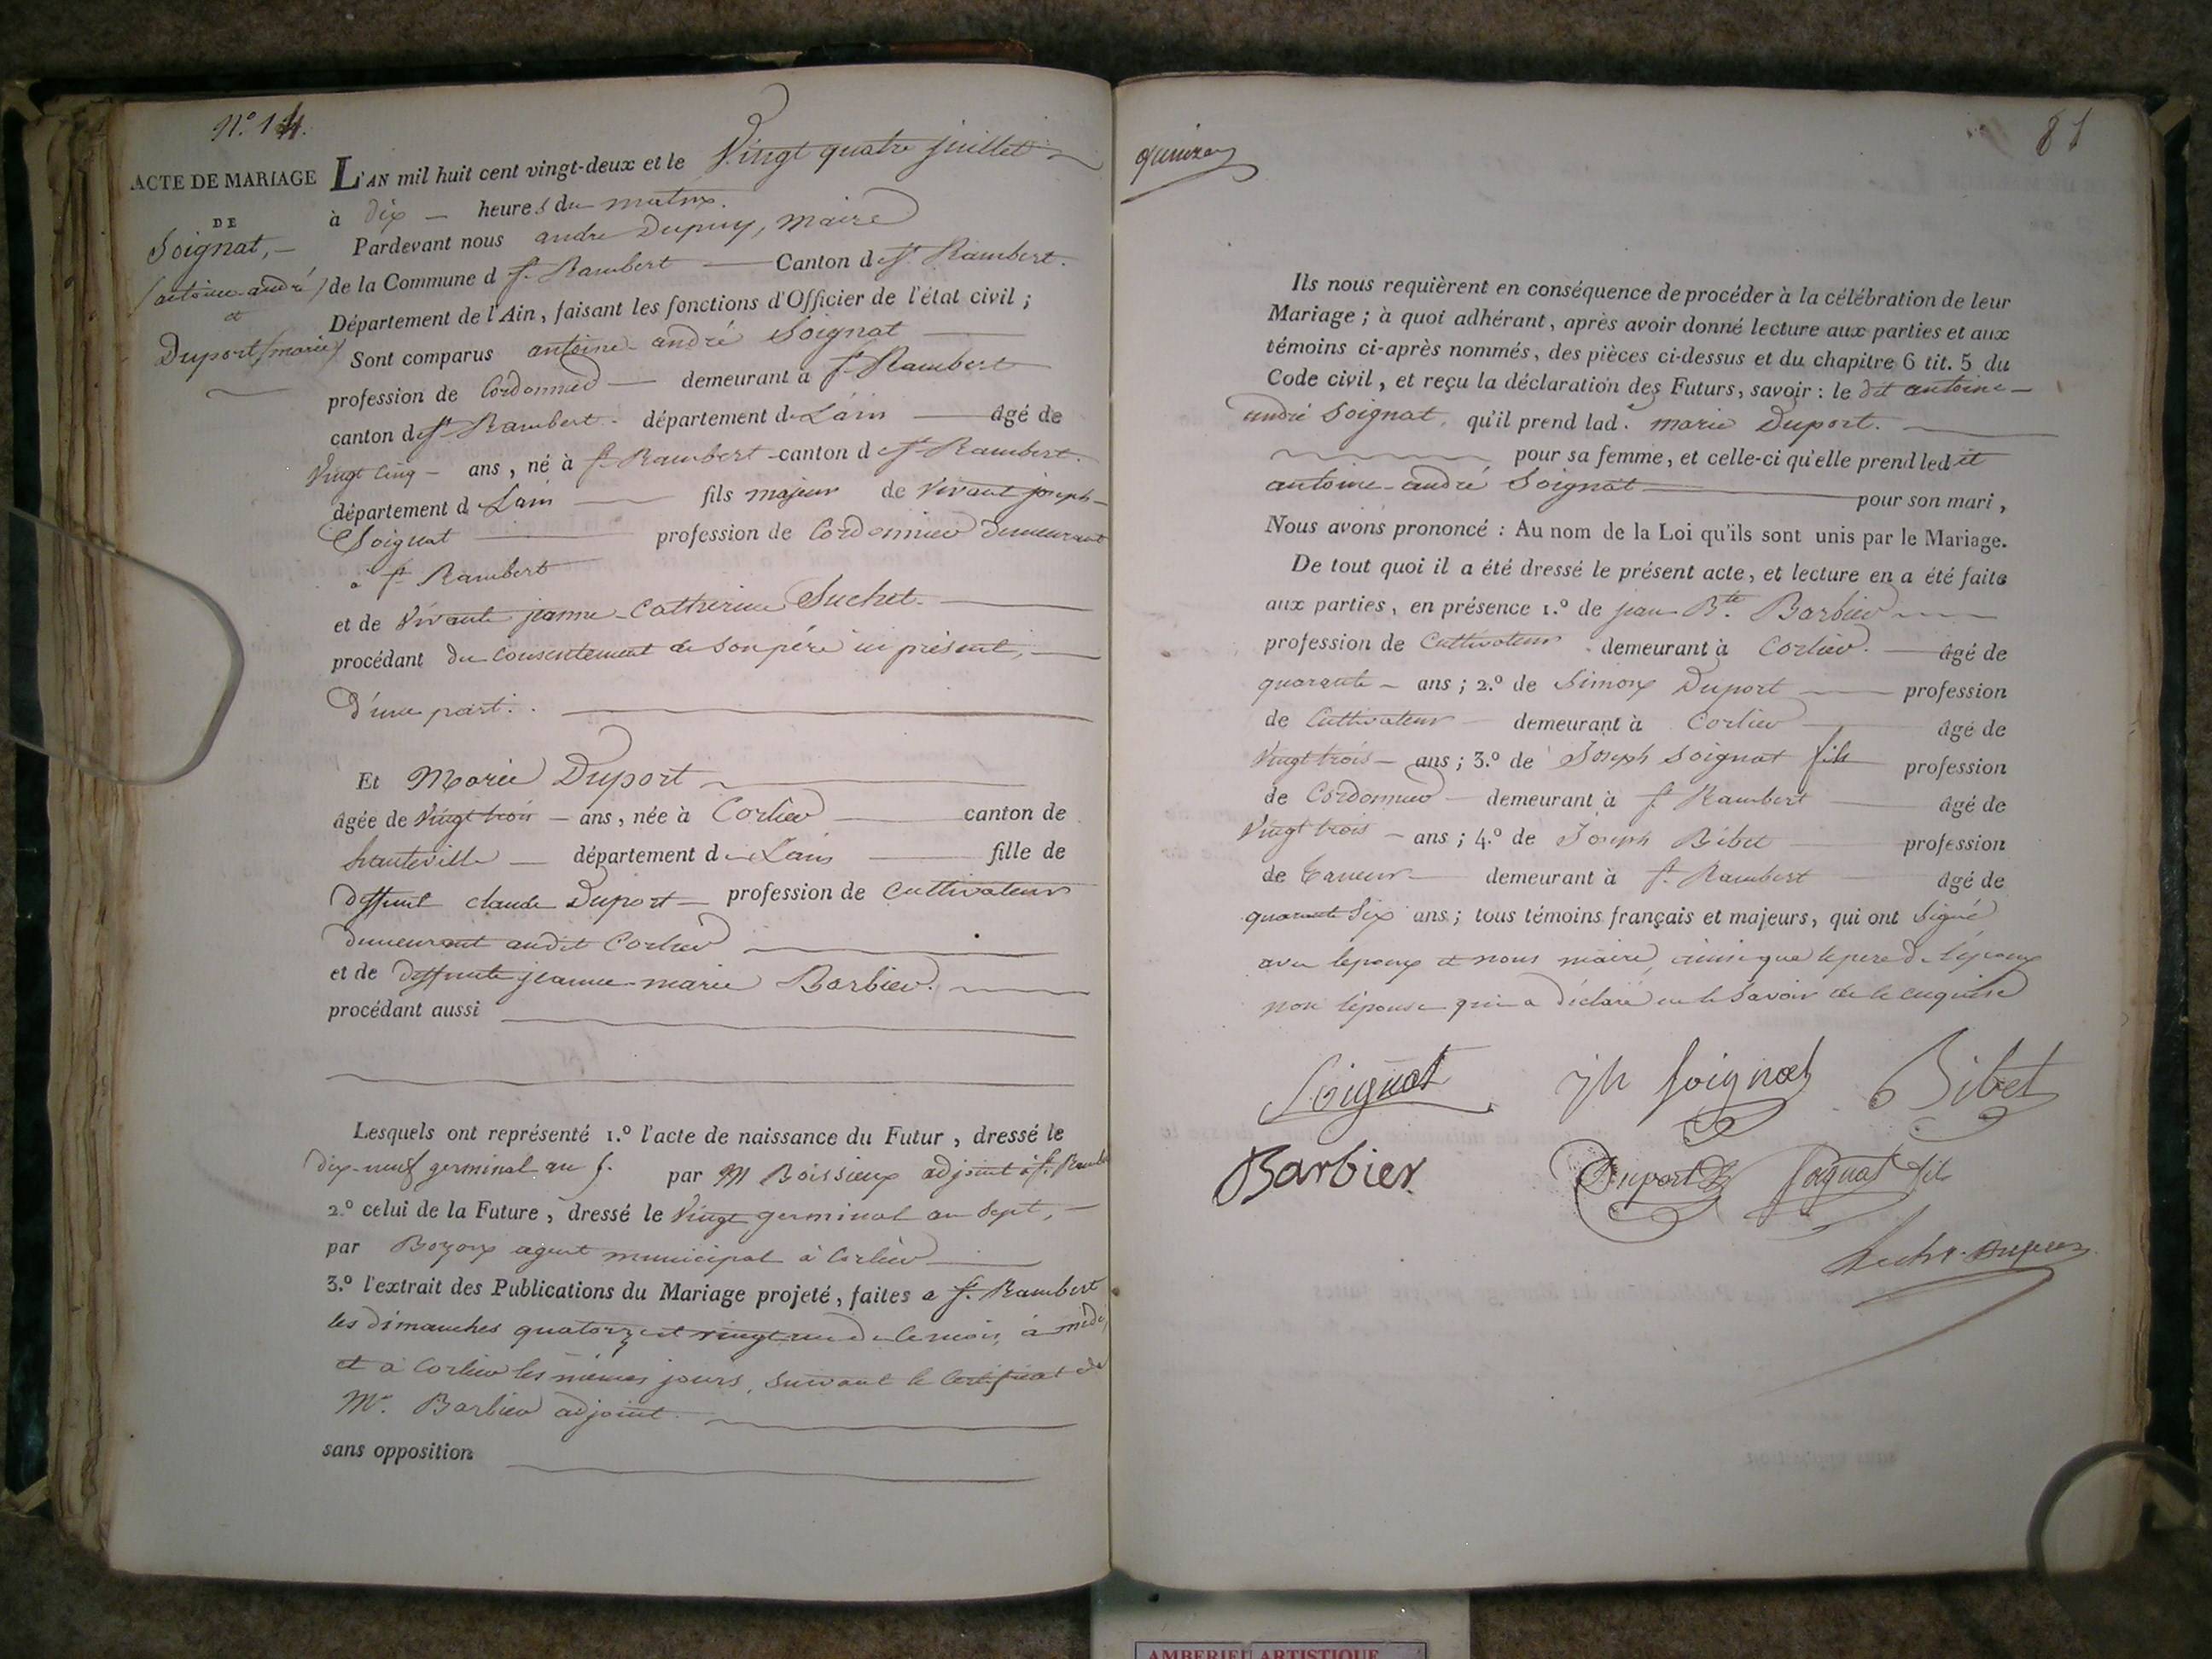 N.o 14.
ACTE DE MARIAGE
DE
Soignat, —
(antoine andré)
et
Duport (marie)
L'AN mil huit cent vingt-deux et le Vingt quatre juillet
à dix — heures du matin.
Pardevant nous andré Dupuy, maire
de la Commune d St. Rambert — Canton de St. Rambert.
Département de l'Ain, faisant les fonctions d'Officier de l'état civil ;
Sont comparus antoine andré Soignat
profession de Cordonnier — demeurant à St. Rambert
canton de St. Rambert. département de L'ain — âgé de
Vingt cinq — ans, né à St. Rambert canton de St. Rambert.
département de L'ain — fils majeur de vivant joseph
Soignat — profession de Cordonnier demeurant
à St. Rambert
et de Vivante jeanne Catherine Suchet. —
procédant du consentement de son père ici présent, —
D'une part. —
Et Marie Duport —
âgée de Vingt trois — ans, née à Corlier — canton de
hauteville — département de L'ain — fille de
deffunt claude Duport — profession de Cultivateur
demeurant audit Corlier —
et de deffunte jeanne marie Barbier. —
procédant aussi
Lesquels ont représenté 1.o l'acte de naissance du Futur, dressé le
dix-neuf germinal an 5. par M Boissieux adjoint à St. Rambert
2.o celui de la Future, dressé le Vingt germinal an Sept, —
par Bozon agent municipal à Corlier —
3.o l'extrait des Publications du Mariage projeté, faites a St. Rambert
les dimanches quatorze et vingt un de ce mois, à midi,
et à Corlier les mêmes jours, suivant le Certificat de
Mr. Barbier adjoint. —
sans opposition
81
Ils nous requièrent en conséquence de procéder à la célébration de leur
Mariage ; à quoi adhérant, après avoir donné lecture aux parties et aux
témoins ci-après nommés, des pièces ci-dessus et du chapitre 6 tit. 5 du
Code civil, et reçu la déclaration des Futurs, savoir : le dit antoine —
andré Soignat, qu'il prend lad. marie Duport. —
pour sa femme, et celle-ci qu'elle prend ledit
antoine andré Soignat — pour son mari,
Nous avons prononcé : Au nom de la Loi qu'ils sont unis par le Mariage.
De tout quoi il a été dressé le présent acte, et lecture en a été faite
aux parties, en présence 1.o de jean Bte. Barbier —
profession de Cultivateur demeurant à Corlier. — âgé de
quarante — ans ; 2.o de Simon Duport — profession
de Cultivateur demeurant à Corlier — âgé de
Vingt trois — ans ; 3.o de Joseph Soignat fils profession
de Cordonnier — demeurant à St. Rambert — âgé de
Vingt trois — ans ; 4.o de Joseph Bibet — profession
de Taneur — demeurant à St. Rambert — âgé de
quarante Six ans ; tous témoins français et majeurs, qui ont Signé
avec lepoux et nous maire, ainsi que le pere de l'époux
non l'épouse qui a déclaré ne le Savoir de ce enquise
Soignat jh Soignat Bibet
Barbier Duport Soignat fils
Dupuy
AMBERIEU ARTISTIQUE